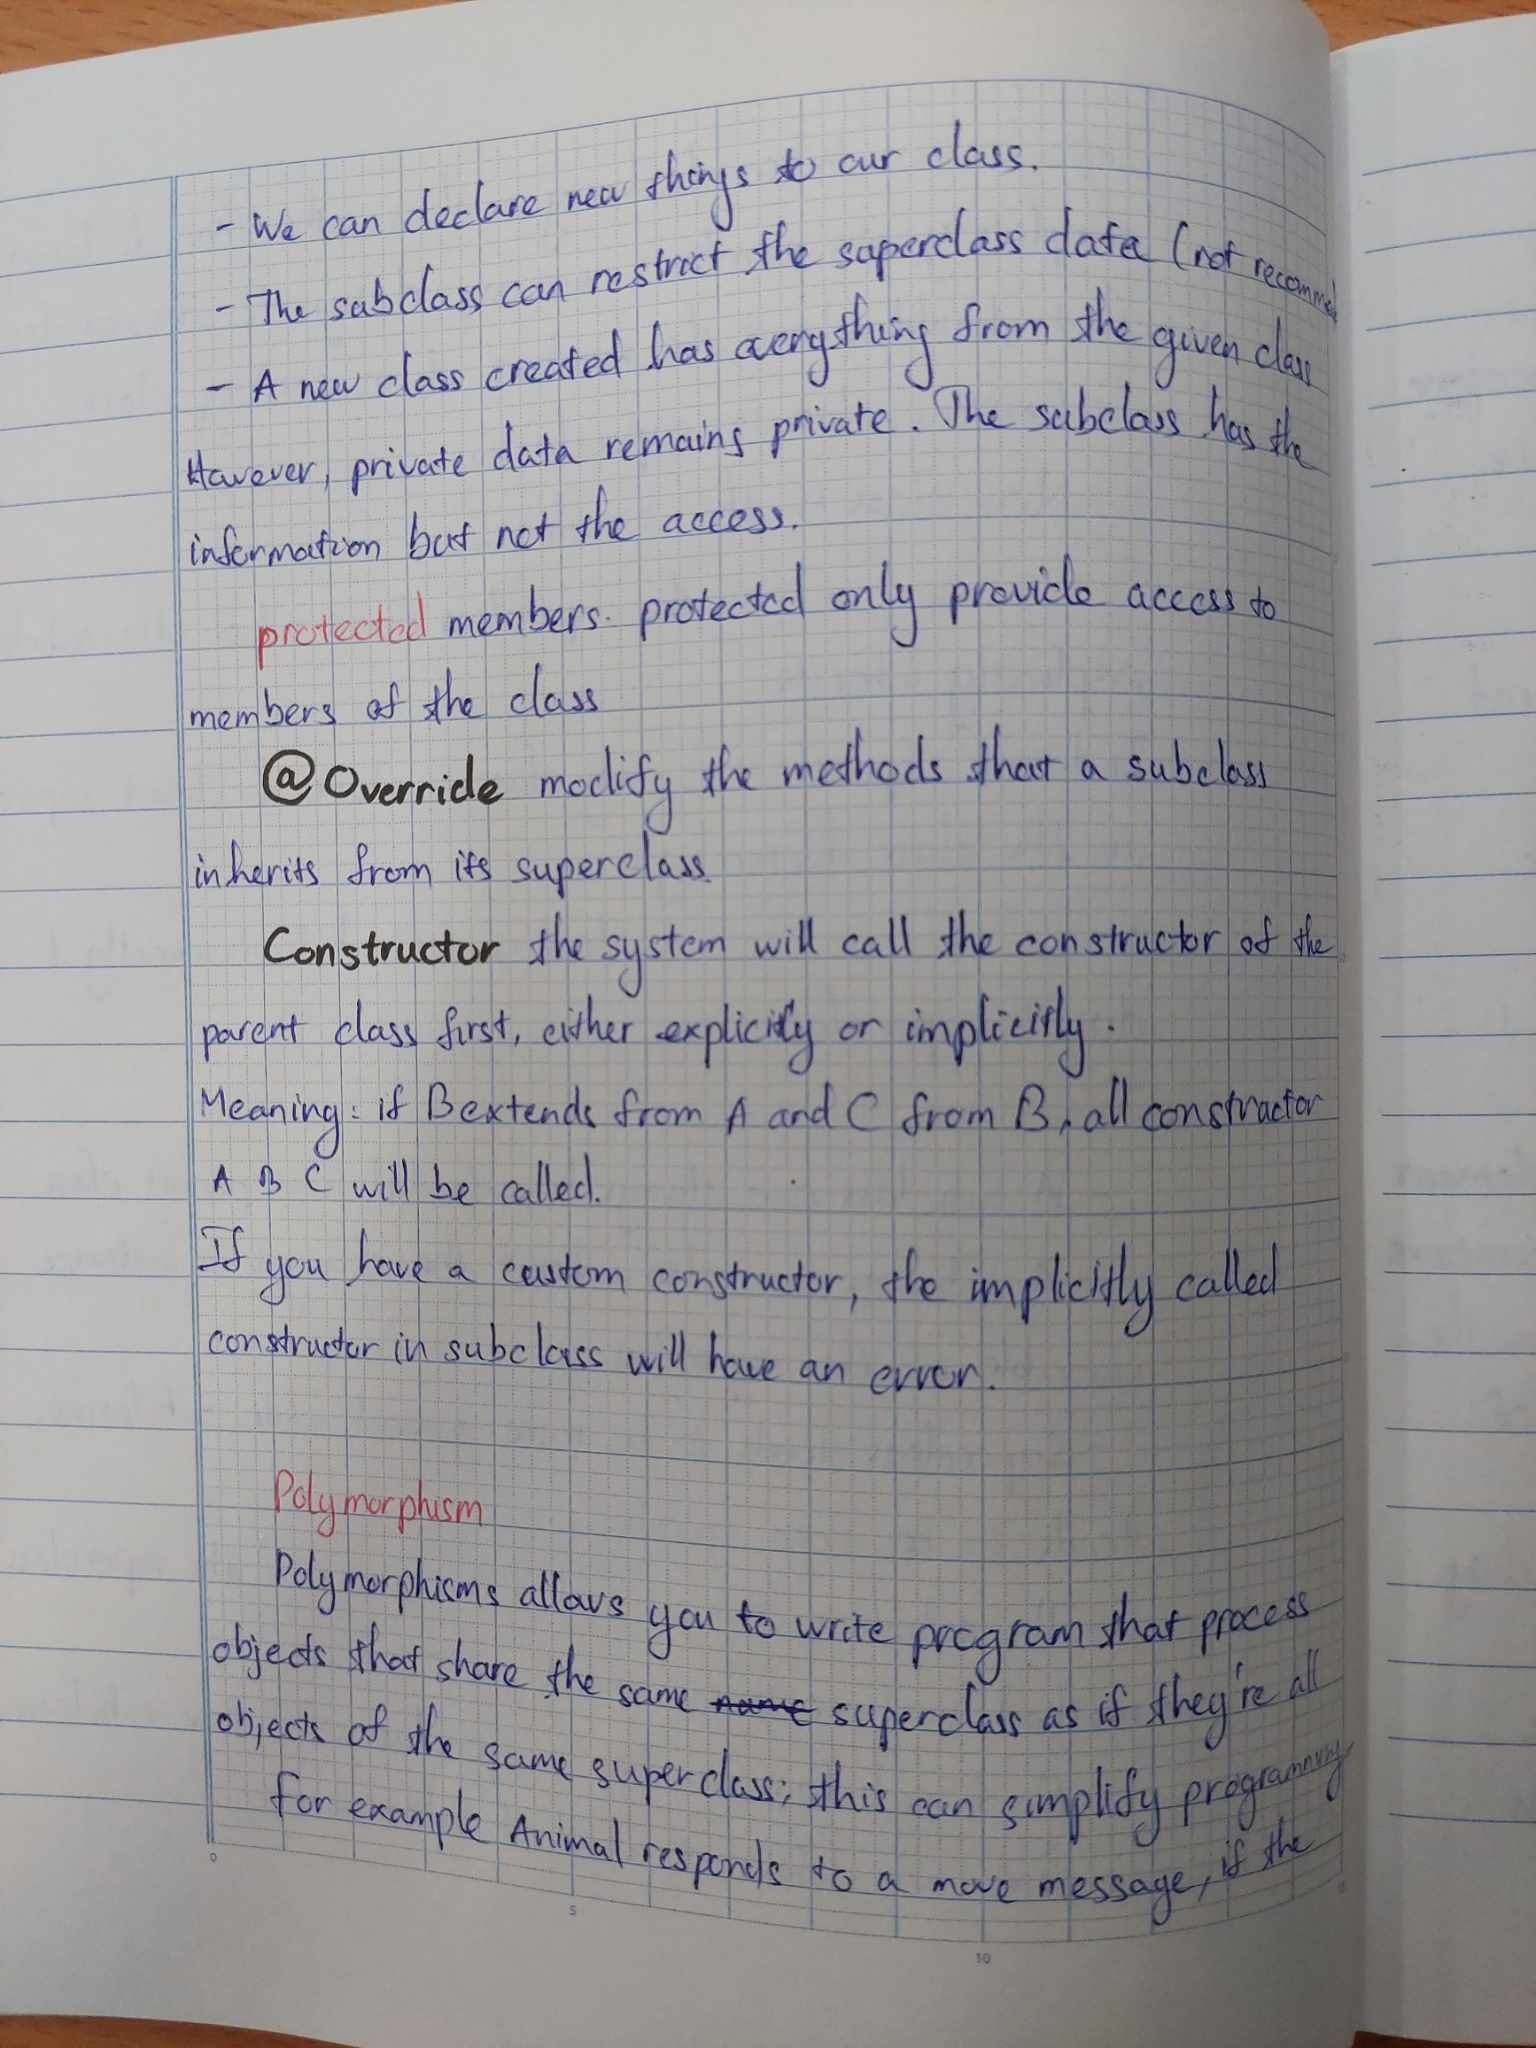 - We can declare new things to our class.
- The subclass can restrict the superclass data (not recomme
- A new class created has everything from the given class
However, private data remains private. The subclass has the
information but not the access.
protected members. protected only provide access to
members of the class
@Override modify the methods that a subclass
inherits from its superclass
Constructor the system will call the constructor of the
parent class first, either explicitly or implicitly.
Meaning: if B extends from A and C from B, all constructor
A B C will be called.
If you have a custom constructor, the implicitly called
constructor in subclass will have an error.
Polymorphism
Polymorphisms allows you to write program that process
objects that share the same name superclass as if they're all
objects of the same superclass; this can simplify programming
for example Animal responds to a move message, if the
0 5 10